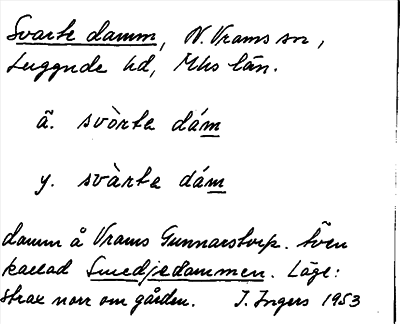 Svarte damm, N. Vrams sn,
Luggude hd, Mhs län.
ä. svòrta dám
y. svàrta dám
damm å Vrams Gunnarstorp. Även
kallad Smedjedammen. Läge:
strax norr om gården. I. Ingers 1953